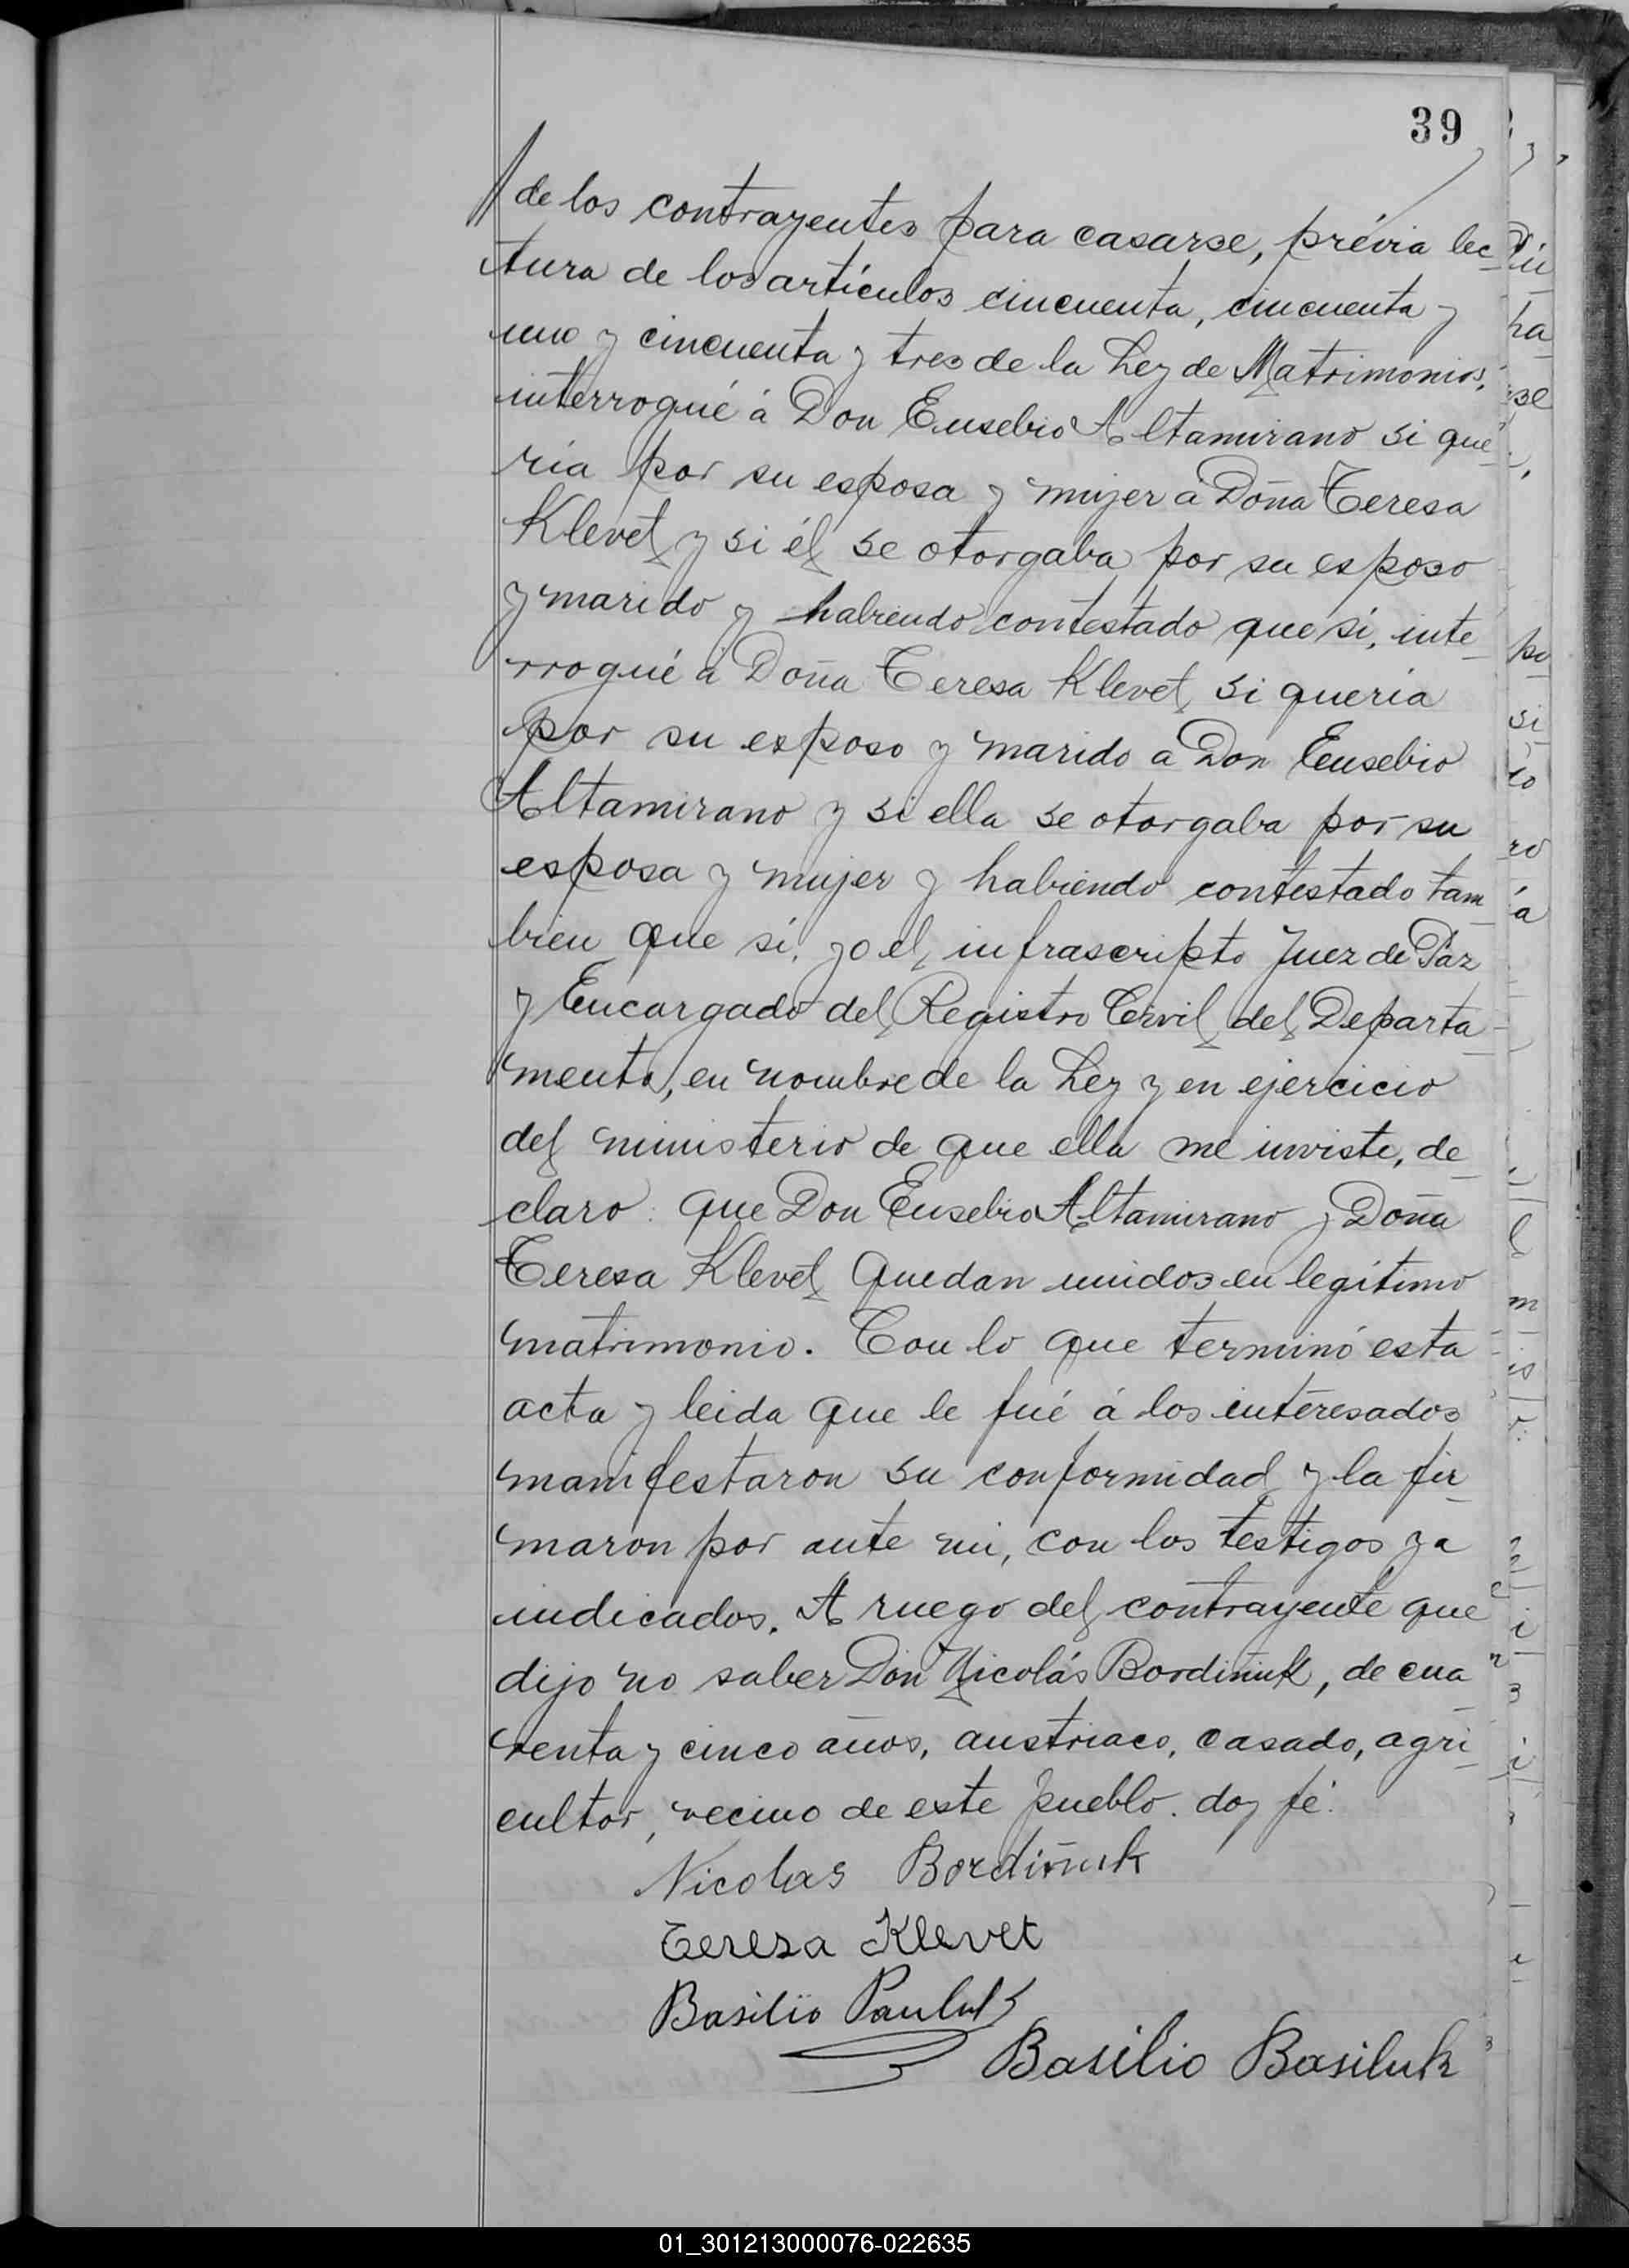 39
de los contrayentes para casarse, prévia lec_
tura de los artículos cincuenta, cincuenta y
uno y cincuenta y tres de la Ley de Matrimonios,
interrogué á Don Eusebio Altamirano si que_
ria por su esposa y mujer á Doña Teresa
Klevet y si él se otorgaba por su esposo
y marido y habiendo contestado que sí, inte_
rrogué á Doña Teresa Klevet si queria
por su esposo y marido a Don Eusebio
Altamirano y si ella se otorgaba por su
esposa y mujer y habiendo contestado tam_
bien que sí, yo el infrascripto Juez de Paz
y Encargado del Registro Civil del Departa_
mento, en nombre de la Ley y en ejercicio
del ministerio de que ella me inviste, de_
claro: que Don Eusebio Altamirano y Doña
Teresa Klevet quedan unidos en legítimo
matrimonio. Con lo que terminó esta
acta y leida que le fué á los interesados
manifestaron su conformidad y la fir_
maron por ante mi, con los testigos ya
indicados. A ruego del contrayente que
dijo no saber Don Nicolás Bordiñuk, de cua
renta y cinco años, austriaco, casado, agri_
cultor, vecino de este pueblo. doy fé.
Nicolas Bordiñuk
Teresa Klevet
Basilio Pauluk
Basilio Basiluk
01_301213000076-022635